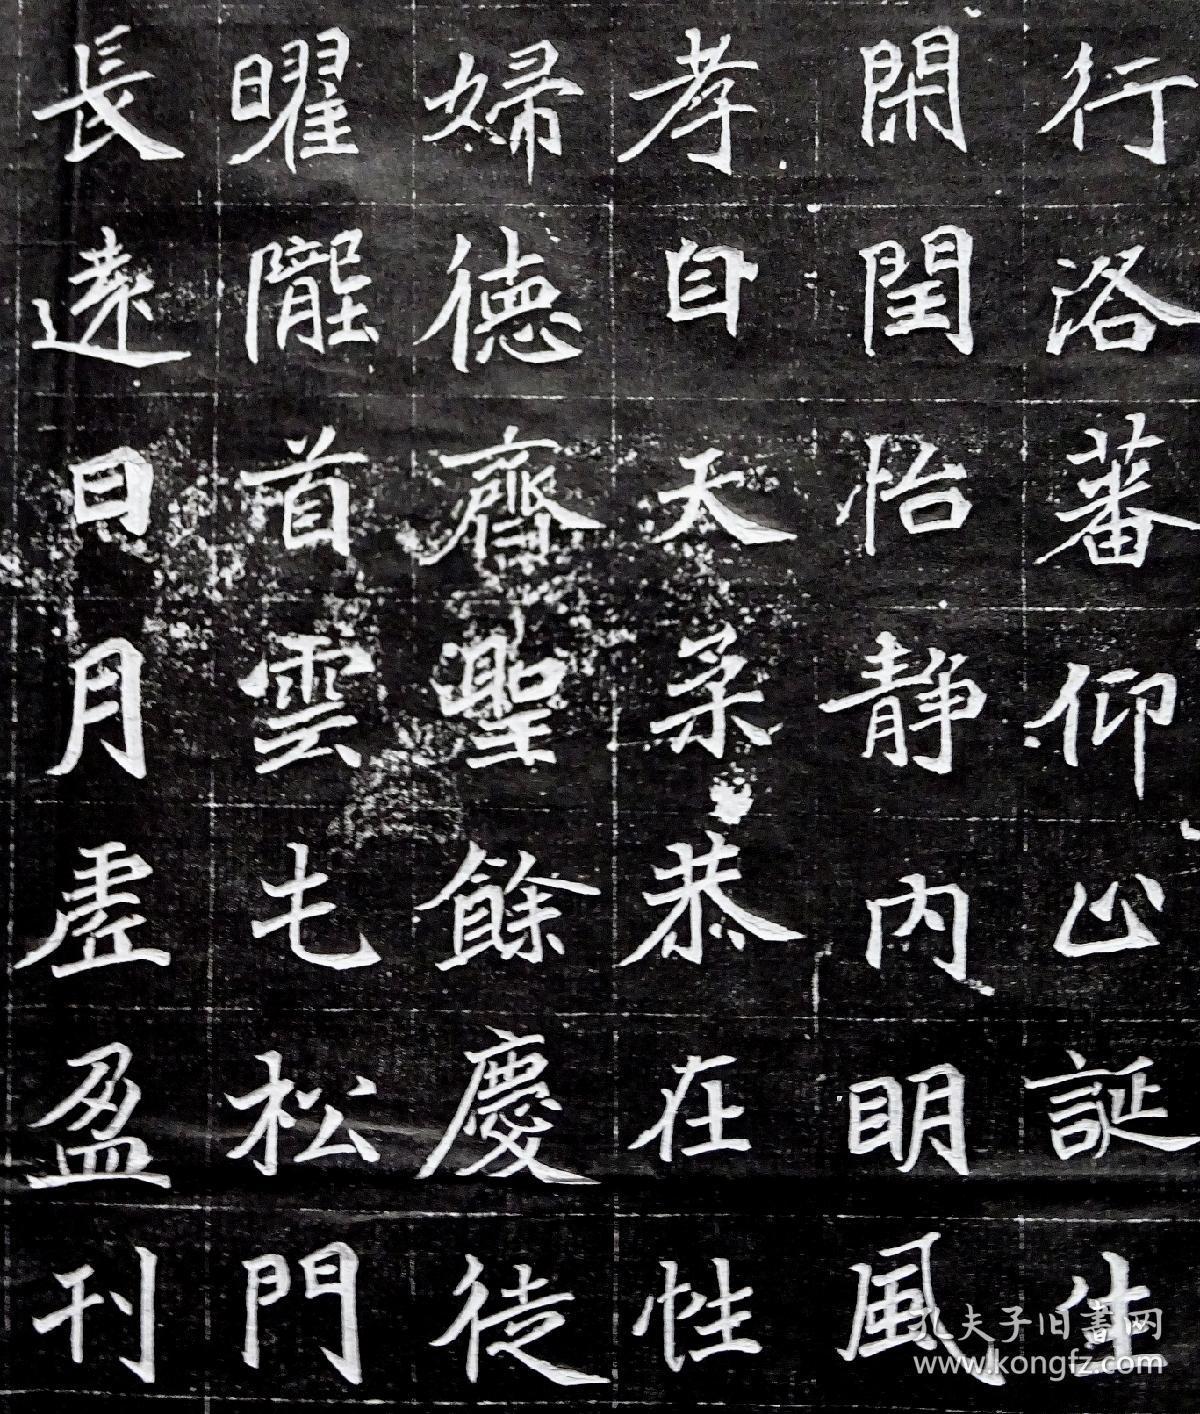 行洛蕃仰止誕生
閑閨怡静内明風
孝自天柔恭在性
婦德齊聖餘慶徒
曜隴首雲屯松門
長遠日月虛盈刊
孔夫子旧書网
www.kongfz.com